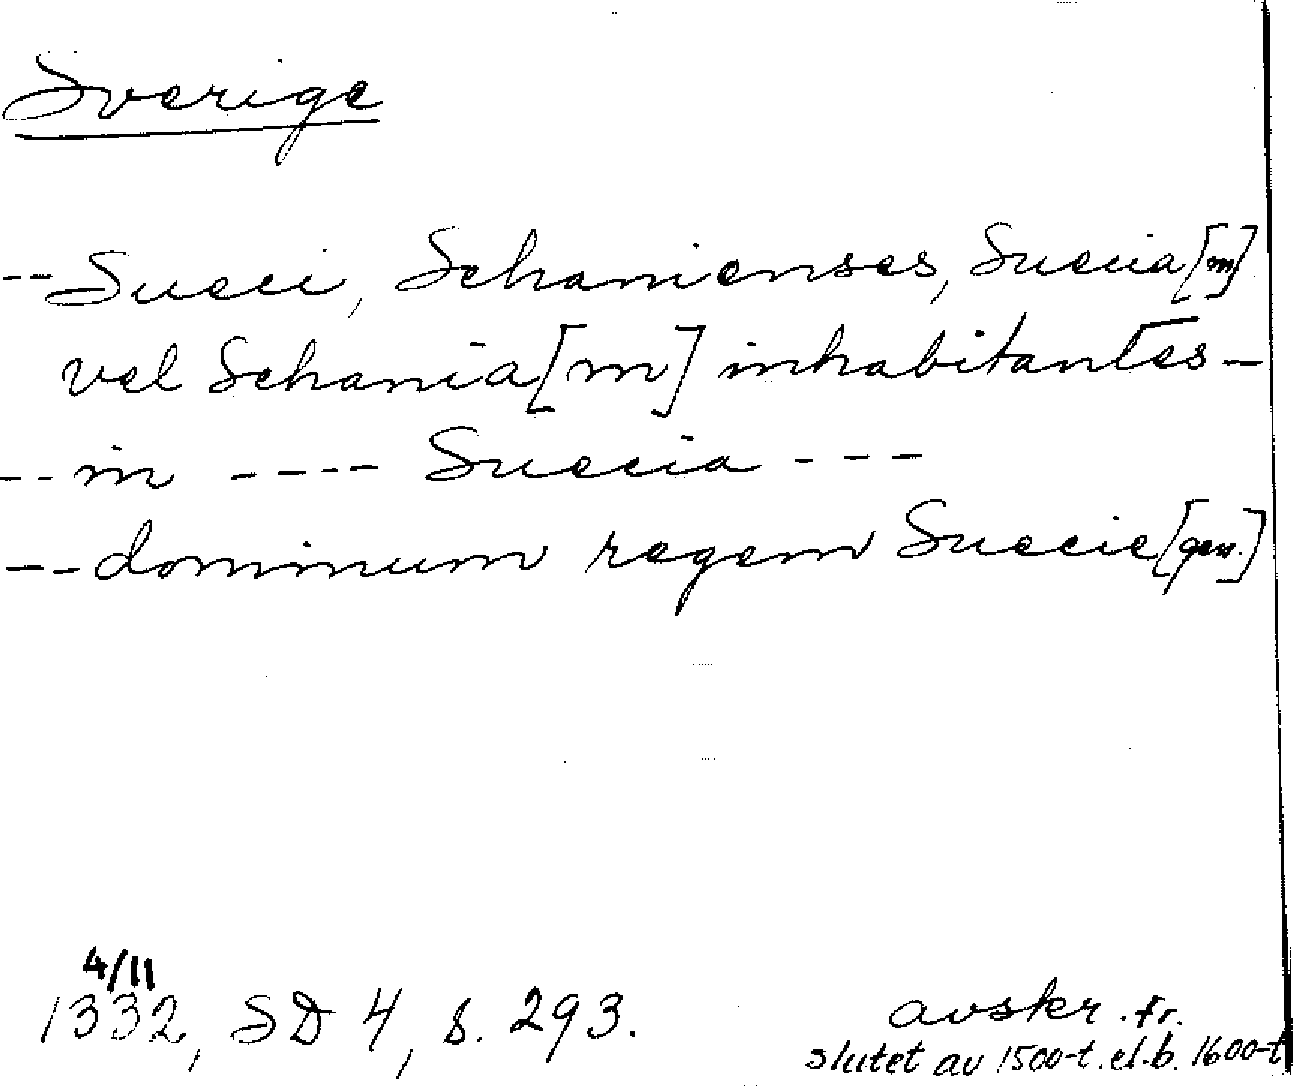 Sverige
-- Sueci, Schanienses, Suecia[m]
vel Schania[m] inhabitantes -
-- in ---- Suecia ---
-- dominum regem Suecie[gen.]
4/11
1332, SD 4, s. 293.
avskr. fr.
slutet av 1500-t. el. b. 1600-t